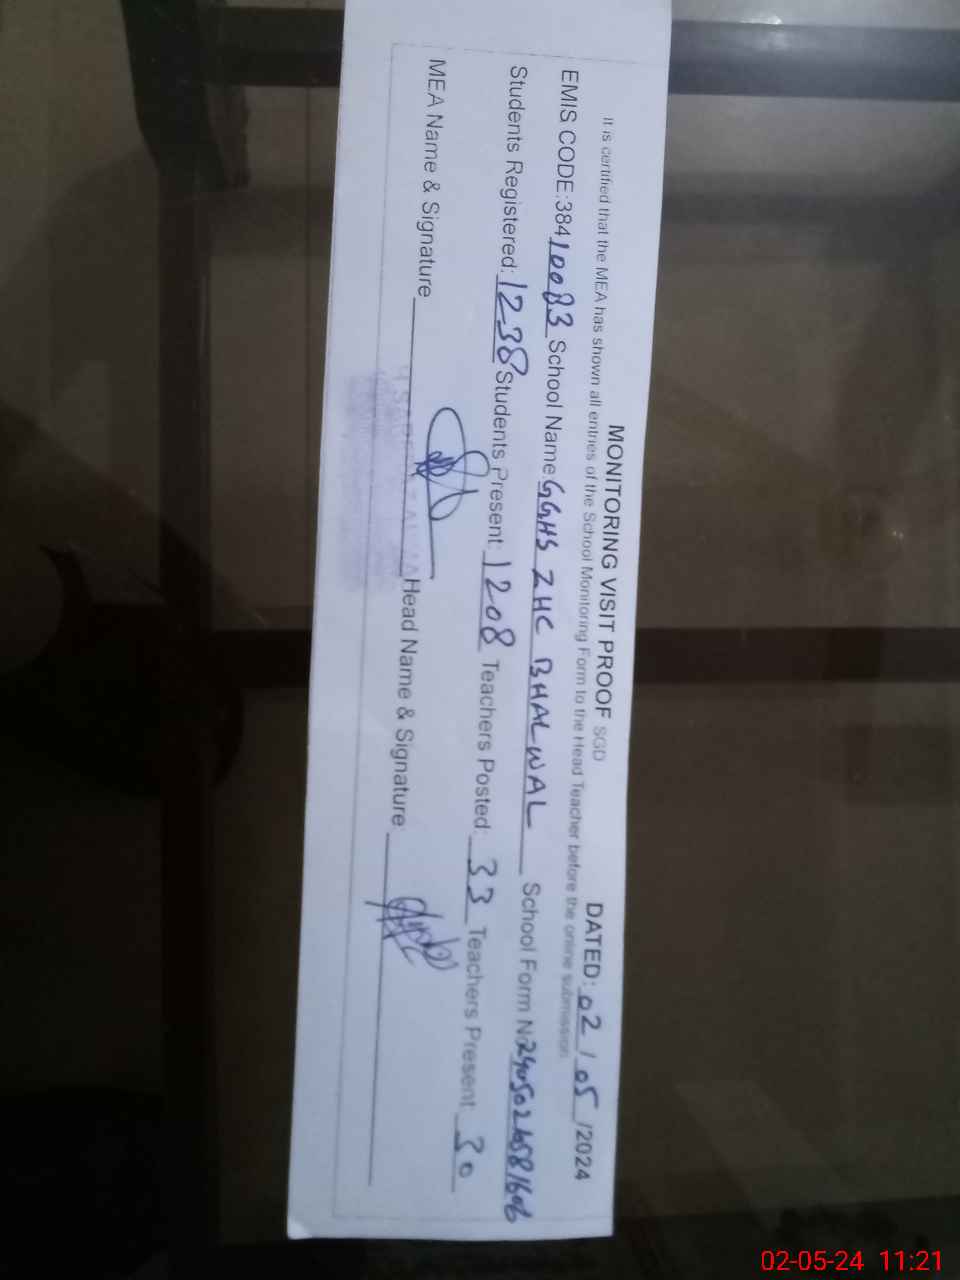 MONITORING VISIT PROOF SGD DATED: 02/05/2024
It is certified that the MEA has shown all entries of the School Monitoring Form to the Head Teacher before the online submission
EMIS CODE:38410083 School Name: GGHS ZHC BHALWAL School Form No
Students Registered: 1238 Students Present: 1208 Teachers Posted: 33 Teachers Present 30
MEA Name & Signature Head Name & Signature
02-05-24 11:21